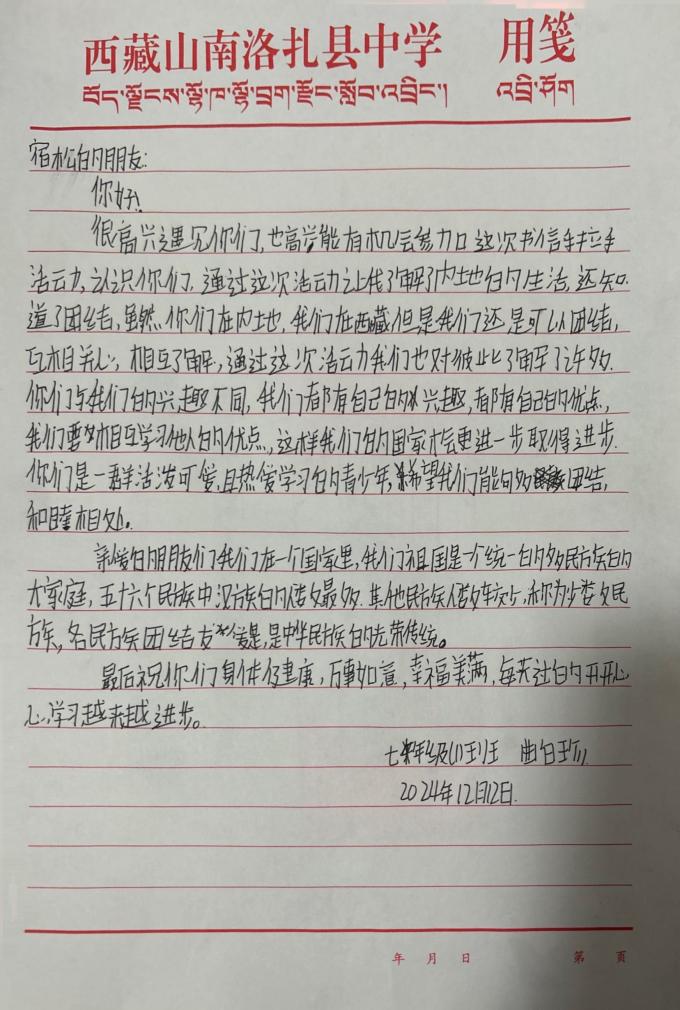 西藏山南洛扎县中学 用笺
བོད་ལྗོངས་ལྷོ་ཁ་ལྷོ་བྲག་རྫོང་སློབ་འབྲིང་། འབྲི་ཤོག
宿松的朋友:
你好!
很高兴遇见你们,也高兴能有机会参加这次书信手拉手
活动,认识你们,通过这次活动让我了解了内地的生活,还知
道了团结,虽然你们在内地,我们在西藏但是我们还是可以团结,
互相关心,相互了解,通过这次活动我们也对彼此了解了许多.
你们与我们的兴趣不同,我们都有自己的兴趣,都有自己的优点,
我们要相互学习他人的优点,这样我们的国家才会更进一步取得进步.
你们是一群活泼可爱,且热爱学习的青少年,希望我们能够多团结,
和睦相处。
亲爱的朋友们我们在一个国家里,我们祖国是一个统一的多民族的
大家庭,五十六个民族中汉族的人数最多.其他民族人数较少,称为少数民
族,各民族团结友爱是,是中华民族的光荣传统。
最后祝你们身体健康,万事如意,幸福美满,每天过的开开心
心,学习越来越进步。
七年级(1)班 曲白珍
2024年12月12日.
年 月 日 第 页